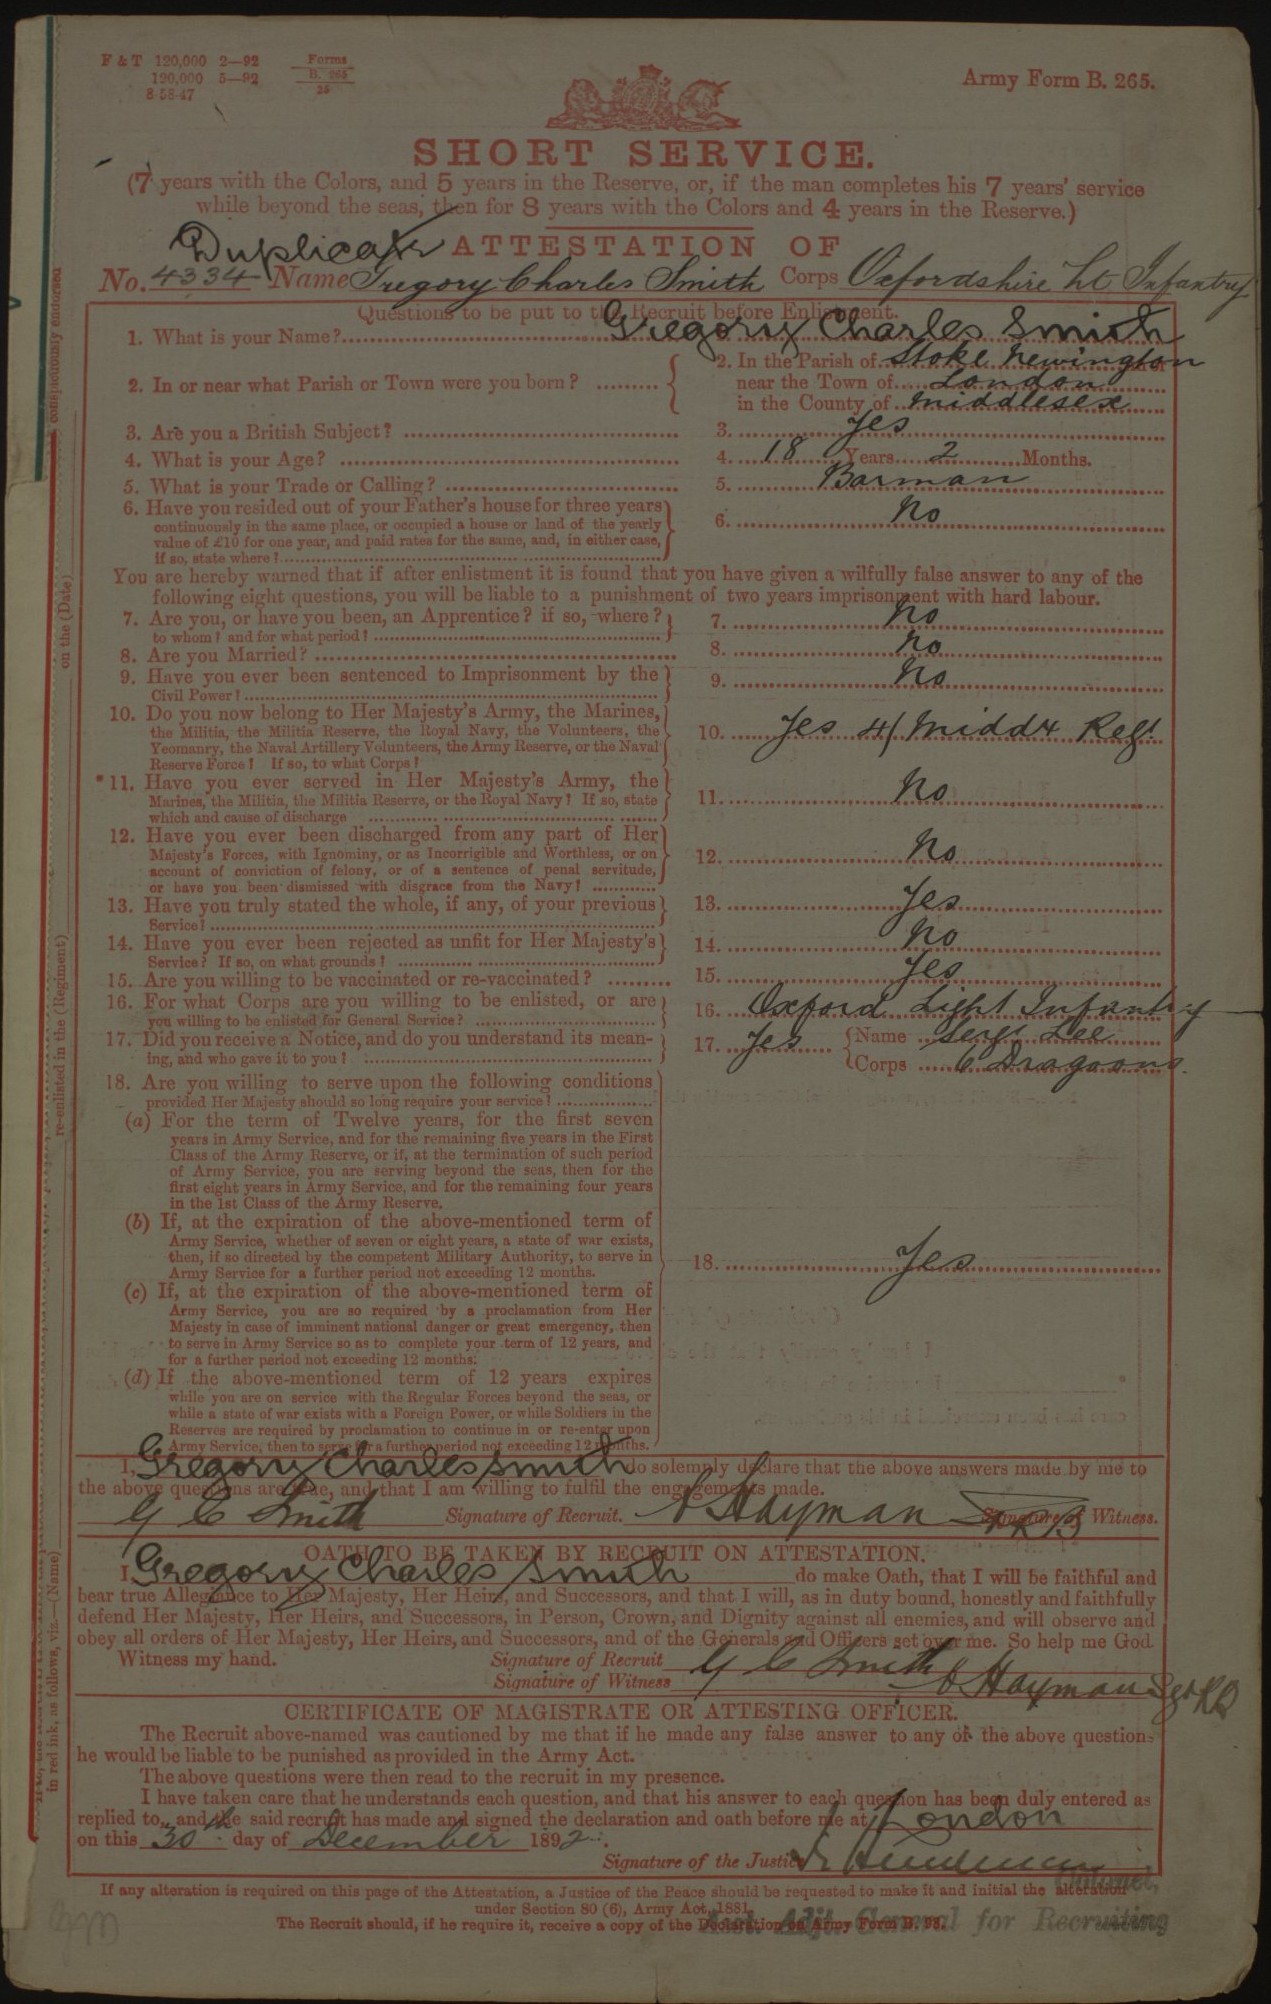 F & T 120,000 2—92 Forms
120,000 5—92 B. 265
8-58-47 25
Army Form B. 265.
SHORT SERVICE.
(7 years with the Colors, and 5 years in the Reserve, or, if the man completes his 7 years' service
while beyond the seas, then for 8 years with the Colors and 4 years in the Reserve.)
Duplicate ATTESTATION OF
No. 4334 Name Gregory Charles Smith Corps Oxfordshire Lt Infantry
Questions to be put to the Recruit before Enlistment.
1. What is your Name? Gregory Charles Smith
2. In or near what Parish or Town were you born?
2. In the Parish of Stoke Newington
near the Town of London
in the County of Middlesex
3. Are you a British Subject? 3. Yes
4. What is your Age? 4. 18 Years 2 Months.
5. What is your Trade or Calling? 5. Barman
6. Have you resided out of your Father's house for three years
continuously in the same place, or occupied a house or land of the yearly
value of £10 for one year, and paid rates for the same, and, in either case,
if so, state where?
6. No
You are hereby warned that if after enlistment it is found that you have given a wilfully false answer to any of the
following eight questions, you will be liable to a punishment of two years imprisonment with hard labour.
7. Are you, or have you been, an Apprentice? if so, where?
to whom? and for what period?
7. No
8. Are you Married? 8. No
9. Have you ever been sentenced to Imprisonment by the
Civil Power?
9. No
10. Do you now belong to Her Majesty's Army, the Marines,
the Militia, the Militia Reserve, the Royal Navy, the Volunteers, the
Yeomanry, the Naval Artillery Volunteers, the Army Reserve, or the Naval
Reserve Force? If so, to what Corps?
10. Yes 4/ Middx Regt
*11. Have you ever served in Her Majesty's Army, the
Marines, the Militia, the Militia Reserve, or the Royal Navy? If so, state
which and cause of discharge
11. No
12. Have you ever been discharged from any part of Her
Majesty's Forces, with Ignominy, or as Incorrigible and Worthless, or on
account of conviction of felony, or of a sentence of penal servitude,
or have you been dismissed with disgrace from the Navy?
12. No
13. Have you truly stated the whole, if any, of your previous
Service?
13. Yes
14. Have you ever been rejected as unfit for Her Majesty's
Service? If so, on what grounds?
14. No
15. Are you willing to be vaccinated or re-vaccinated? 15. Yes
16. For what Corps are you willing to be enlisted, or are
you willing to be enlisted for General Service?
16. Oxford Light Infantry
17. Did you receive a Notice, and do you understand its mean-
ing, and who gave it to you?
17. Yes Name Sergt Lee
Corps 6 Dragoons
18. Are you willing to serve upon the following conditions
provided Her Majesty should so long require your service?
(a) For the term of Twelve years, for the first seven
years in Army Service, and for the remaining five years in the First
Class of the Army Reserve, or if, at the termination of such period
of Army Service, you are serving beyond the seas, then for the
first eight years in Army Service, and for the remaining four years
in the 1st Class of the Army Reserve.
(b) If, at the expiration of the above-mentioned term of
Army Service, whether of seven or eight years, a state of war exists,
then, if so directed by the competent Military Authority, to serve in
Army Service for a further period not exceeding 12 months.
18. Yes
(c) If, at the expiration of the above-mentioned term of
Army Service, you are so required by a proclamation from Her
Majesty in case of imminent national danger or great emergency, then
to serve in Army Service so as to complete your term of 12 years, and
for a further period not exceeding 12 months.
(d) If the above-mentioned term of 12 years expires
while you are on service with the Regular Forces beyond the seas, or
while a state of war exists with a Foreign Power, or while Soldiers in the
Reserves are required by proclamation to continue in or re-enter upon
Army Service, then to serve for a further period not exceeding 12 months.
I, Gregory Charles Smith do solemnly declare that the above answers made by me to
the above questions are true, and that I am willing to fulfil the engagements made.
G C Smith Signature of Recruit. Hayman Signature of Witness.
OATH TO BE TAKEN BY RECRUIT ON ATTESTATION.
I Gregory Charles Smith do make Oath, that I will be faithful and
bear true Allegiance to Her Majesty, Her Heirs, and Successors, and that I will, as in duty bound, honestly and faithfully
defend Her Majesty, Her Heirs, and Successors, in Person, Crown, and Dignity against all enemies, and will observe and
obey all orders of Her Majesty, Her Heirs, and Successors, and of the Generals and Officers set over me. So help me God.
Witness my hand. Signature of Recruit G C Smith
Signature of Witness Hayman Sgt
CERTIFICATE OF MAGISTRATE OR ATTESTING OFFICER.
The Recruit above-named was cautioned by me that if he made any false answer to any of the above questions
he would be liable to be punished as provided in the Army Act.
The above questions were then read to the recruit in my presence.
I have taken care that he understands each question, and that his answer to each question has been duly entered as
replied to, and the said recruit has made and signed the declaration and oath before me at London
on this 30th day of December 1892.
Signature of the Justice
Colonel,
If any alteration is required on this page of the Attestation, a Justice of the Peace should be requested to make it and initial the alteration
under Section 80 (6), Army Act, 1881.
The Recruit should, if he require it, receive a copy of the Declaration on Army Form B. 98.
Asst. Adjt. General for Recruiting
conspicuously endorsed
on the (Date)
re-enlisted in the (Regiment)
in red ink, as follows, viz.—(Name)